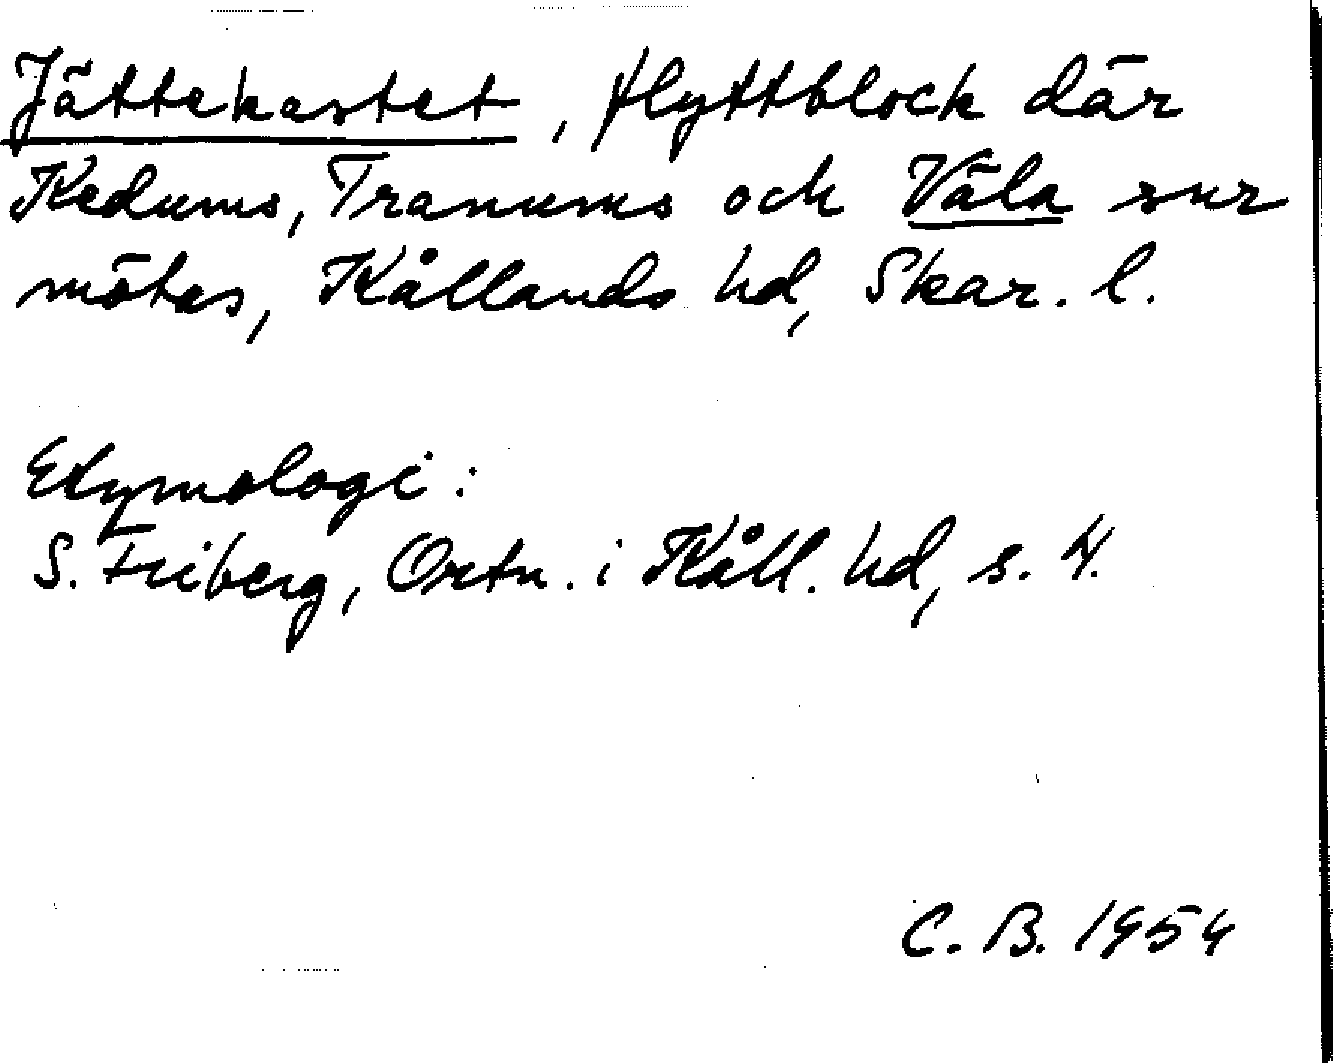 Jättekastet, flyttblock där
Kedums, Tranums och Väla snr
mötas, Kållands hd, Skar. l.
Etymologi:
S. Friberg, Ortn. i Kåll. hd, s. 4.
C. B. 1954